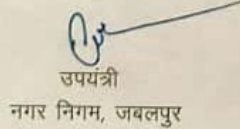 उपयंत्री
नगर निगम, जबलपुर